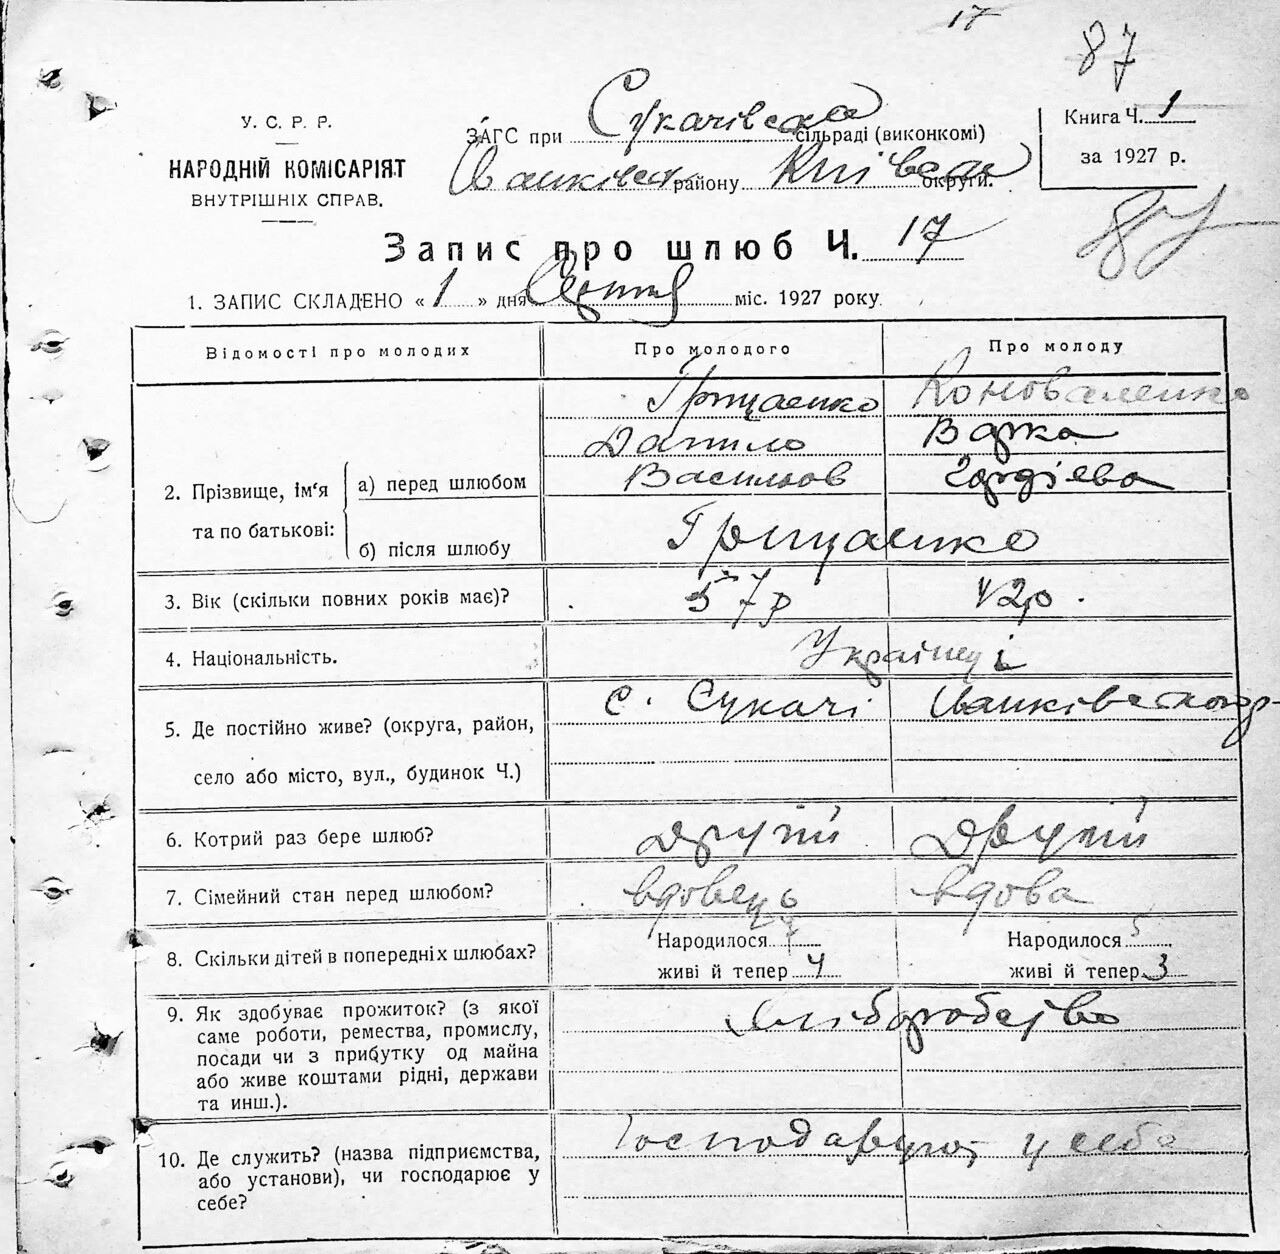 17
87
У. С. Р. Р.
НАРОДНІЙ КОМІСАРІЯТ
ВНУТРІШНІХ СПРАВ.
ЗАГС при Сукачівська сільраді (виконкомі)
Іванківськ району Київськ округи.
Книга Ч. 1
за 1927 р.
87
Запис про шлюб Ч. 17
1. ЗАПИС СКЛАДЕНО « 1 » дня міс. 1927 року
Відомості про молодих Про молодого Про молоду
Грищенко Коноваленко
Данило Варка
2. Прізвище, ім'я та по батькові: а) перед шлюбом Васильов Гордієва
б) після шлюбу Грищенко
3. Вік (скільки повних років має)? 57р 42р.
4. Національність. Українці
5. Де постійно живе? (округа, район, с. Сукачі Іванківського р-
село або місто, вул., будинок Ч.)
6. Котрий раз бере шлюб? Другий Другий
7. Сімейний стан перед шлюбом? вдовець вдова
8. Скільки дітей в попередніх шлюбах? Народилося Народилося 5
живі й тепер 4 живі й тепер 3
9. Як здобуває прожиток? (з якої Хліборобство
саме роботи, ремества, промислу,
посади чи з прибутку од майна
або живе коштами рідні, держави
та инш.).
10. Де служить? (назва підприємства, Господарують у себе
або установи), чи господарює у
себе?